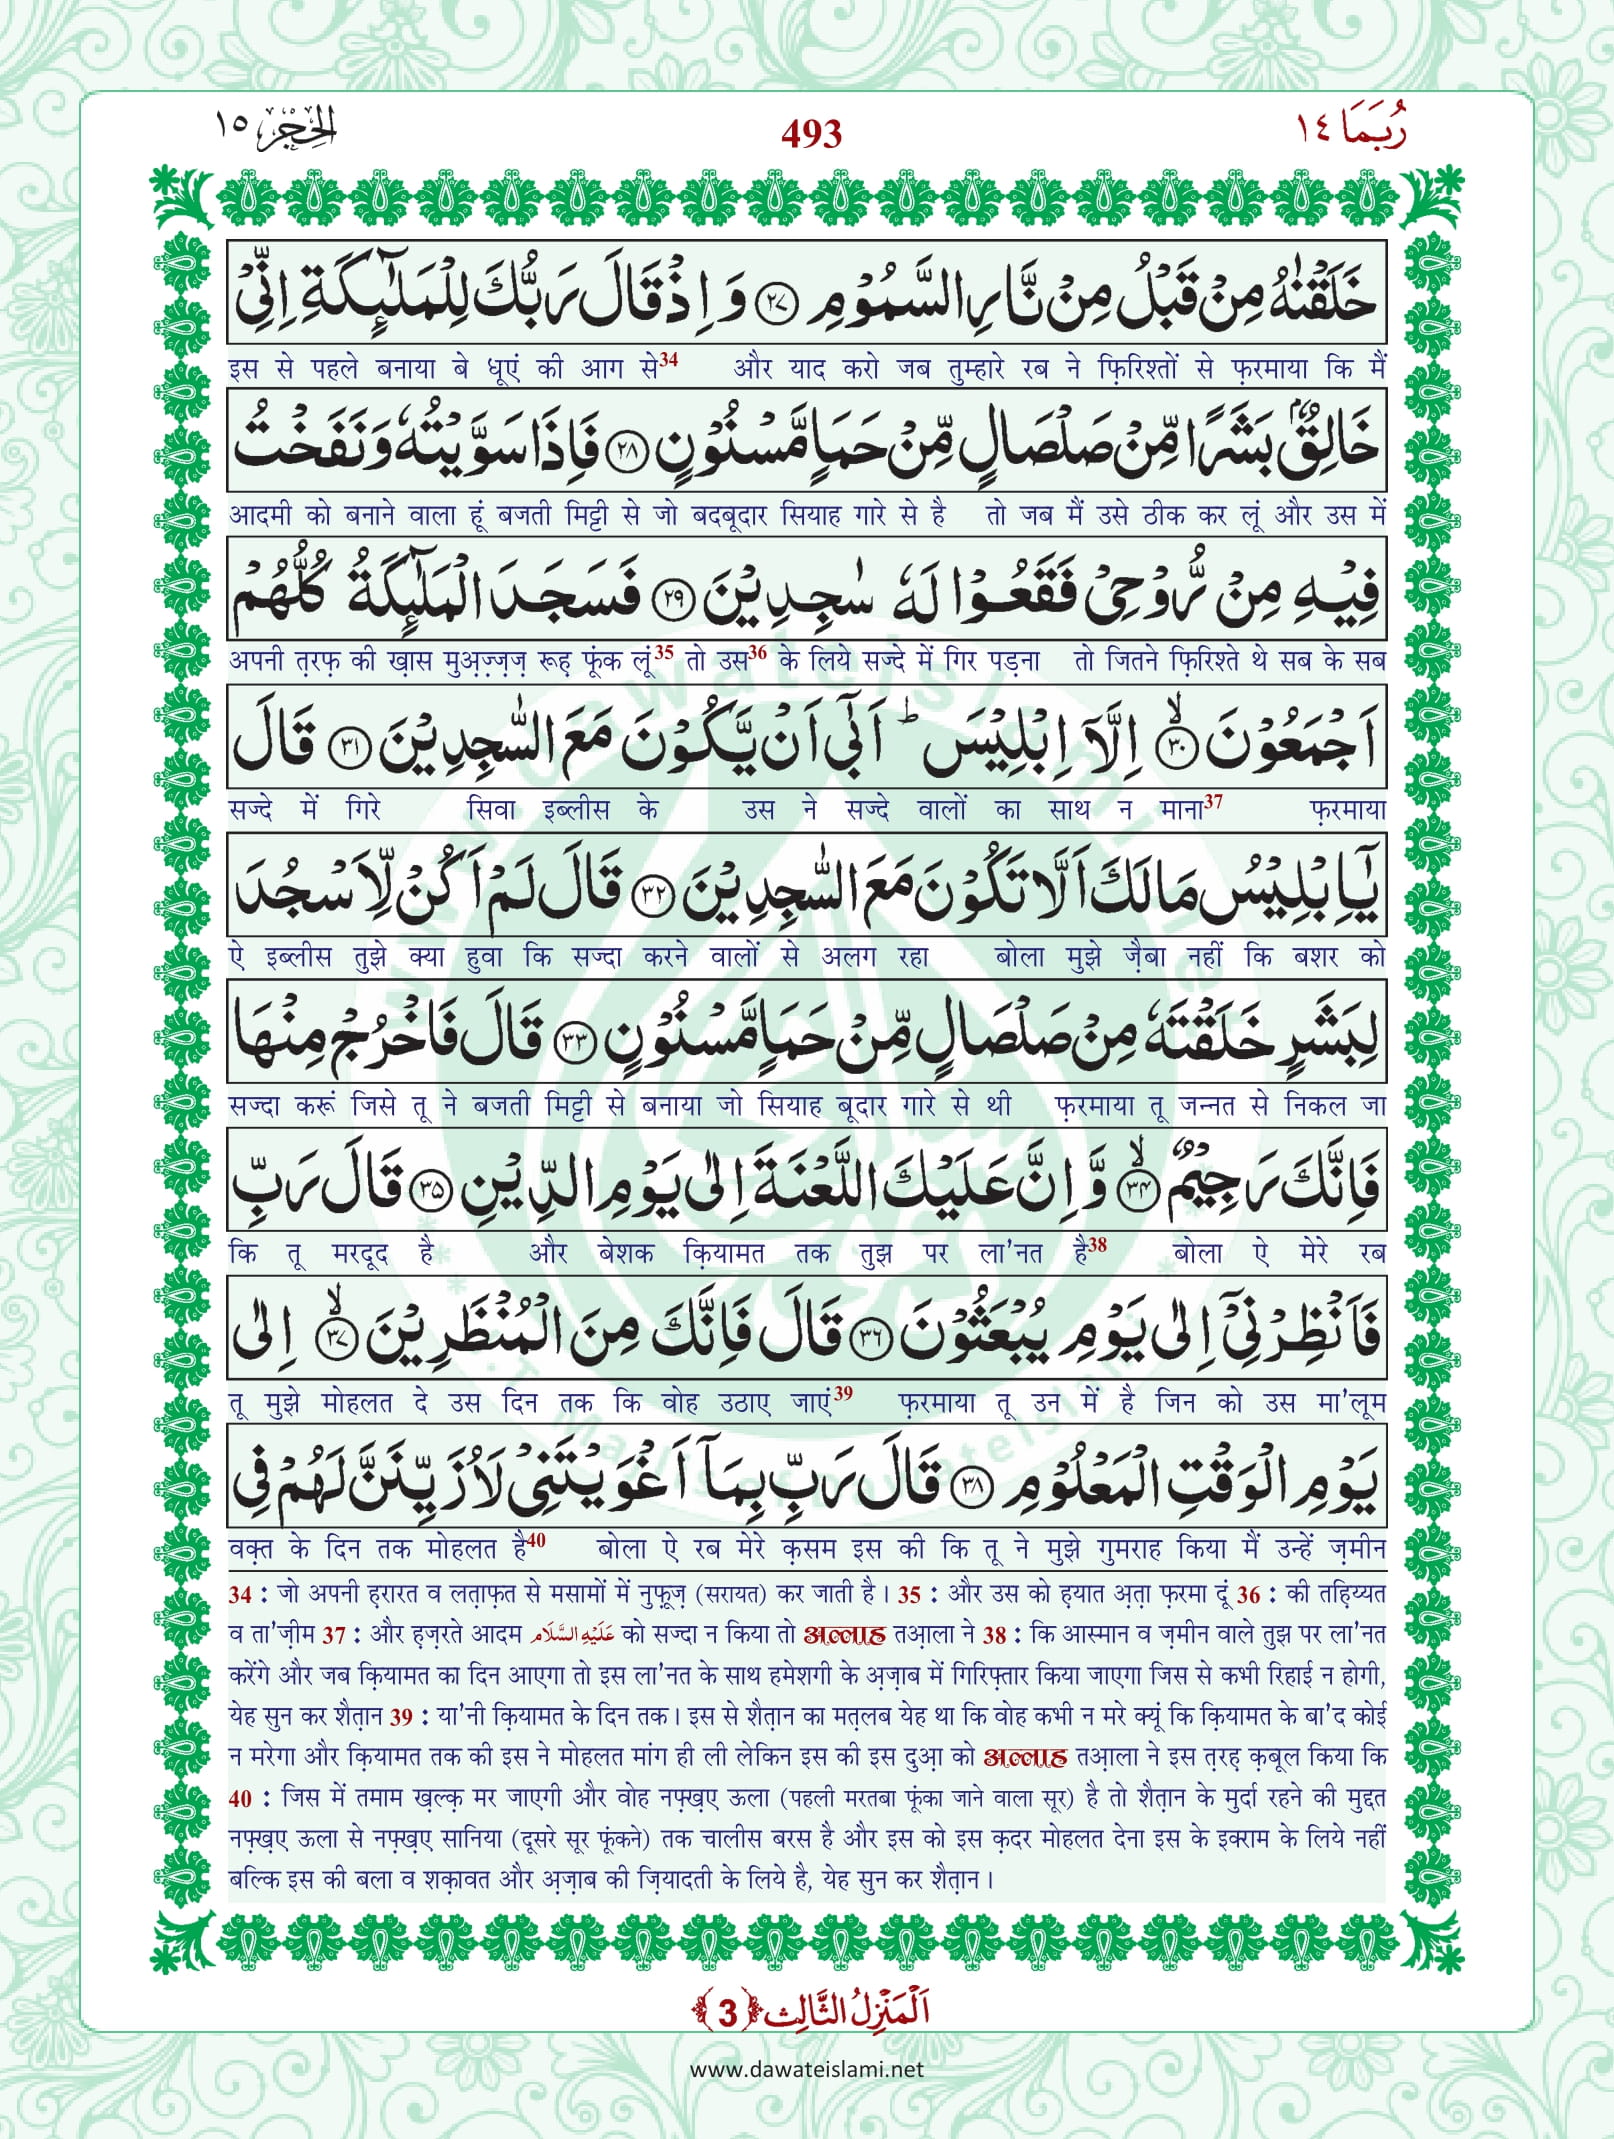 رُبَمَا ١٤
493
الحِجْر ١٥
خَلَقْنٰهُ مِنْ قَبْلُ مِنْ نَّارِ السَّمُوْمِ ﴿۲۷﴾ وَ اِذْ قَالَ رَبُّكَ لِلْمَلٰٓىٕكَةِ اِنِّیْ
इस से पहले बनाया बे धूएं की आग से34 और याद करो जब तुम्हारे रब ने फ़िरिश्तों से फ़रमाया कि मैं
خَالِقٌۢ بَشَرًا مِّنْ صَلْصَالٍ مِّنْ حَمَاٍ مَّسْنُوْنٍ ﴿۲۸﴾ فَاِذَا سَوَّیْتُهٗ وَ نَفَخْتُ
आदमी को बनाने वाला हूं बजती मिट्टी से जो बदबूदार सियाह गारे से है तो जब मैं उसे ठीक कर लूं और उस में
فِیْهِ مِنْ رُّوْحِیْ فَقَعُوْا لَهٗ سٰجِدِیْنَ ﴿۲۹﴾ فَسَجَدَ الْمَلٰٓىٕكَةُ كُلُّهُمْ
अपनी त़रफ़ की ख़ास मुअ़ज़्ज़ज़ रूह़ फूंक लूं35 तो उस36 के लिये सज्दे में गिर पड़ना तो जितने फ़िरिश्ते थे सब के सब
اَجْمَعُوْنَۙ ﴿۳۰﴾ اِلَّاۤ اِبْلِیْسَ ؕ اَبٰۤى اَنْ یَّكُوْنَ مَعَ السّٰجِدِیْنَ ﴿۳۱﴾ قَالَ
सज्दे में गिरे सिवा इब्लीस के उस ने सज्दे वालों का साथ न माना37 फ़रमाया
یٰۤاِبْلِیْسُ مَا لَكَ اَلَّا تَكُوْنَ مَعَ السّٰجِدِیْنَ ﴿۳۲﴾ قَالَ لَمْ اَكُنْ لِّاَسْجُدَ
ऐ इब्लीस तुझे क्या हुवा कि सज्दा करने वालों से अलग रहा बोला मुझे ज़ैबा नहीं कि बशर को
لِبَشَرٍ خَلَقْتَهٗ مِنْ صَلْصَالٍ مِّنْ حَمَاٍ مَّسْنُوْنٍ ﴿۳۳﴾ قَالَ فَاخْرُجْ مِنْهَا
सज्दा करूं जिसे तू ने बजती मिट्टी से बनाया जो सियाह बूदार गारे से थी फ़रमाया तू जन्नत से निकल जा
فَاِنَّكَ رَجِیْمٌۙ ﴿۳۴﴾ وَّ اِنَّ عَلَیْكَ اللَّعْنَةَ اِلٰى یَوْمِ الدِّیْنِ ﴿۳۵﴾ قَالَ رَبِّ
कि तू मरदूद है और बेशक क़ियामत तक तुझ पर ला'नत है38 बोला ऐ मेरे रब
فَاَنْظِرْنِیْۤ اِلٰى یَوْمِ یُبْعَثُوْنَ ﴿۳۶﴾ قَالَ فَاِنَّكَ مِنَ الْمُنْظَرِیْنَۙ ﴿۳۷﴾ اِلٰى
तू मुझे मोहलत दे उस दिन तक कि वोह उठाए जाएं39 फ़रमाया तू उन में है जिन को उस मा'लूम
یَوْمِ الْوَقْتِ الْمَعْلُوْمِ ﴿۳۸﴾ قَالَ رَبِّ بِمَاۤ اَغْوَیْتَنِیْ لَاُزَیِّنَنَّ لَهُمْ فِی
वक़्त के दिन तक मोहलत है40 बोला ऐ रब मेरे क़सम इस की कि तू ने मुझे गुमराह किया मैं उन्हें ज़मीन
34 : जो अपनी ह़रारत व लत़ाफ़त से मसामों में नुफ़ूज़ (सरायत) कर जाती है। 35 : और उस को ह़यात अ़त़ा फ़रमा दूं 36 : की तह़िय्यत
व ता'ज़ीम 37 : और ह़ज़रते आदम عَلَيْهِ السَّلَام को सज्दा न किया तो अल्लाह तआ़ला ने 38 : कि आस्मान व ज़मीन वाले तुझ पर ला'नत
करेंगे और जब क़ियामत का दिन आएगा तो इस ला'नत के साथ हमेशगी के अ़ज़ाब में गिरिफ़्तार किया जाएगा जिस से कभी रिहाई न होगी,
येह सुन कर शैत़ान 39 : या'नी क़ियामत के दिन तक। इस से शैत़ान का मत़लब येह था कि वोह कभी न मरे क्यूं कि क़ियामत के बा'द कोई
न मरेगा और क़ियामत तक की इस ने मोहलत मांग ही ली लेकिन इस की इस दुआ़ को अल्लाह तआ़ला ने इस त़रह़ क़बूल किया कि
40 : जिस में तमाम ख़ल्क़ मर जाएगी और वोह नफ़्ख़ए ऊला (पहली मरतबा फूंका जाने वाला सूर) है तो शैत़ान के मुर्दा रहने की मुद्दत
नफ़्ख़ए ऊला से नफ़्ख़ए सानिया (दूसरे सूर फूंकने) तक चालीस बरस है और इस को इस क़दर मोहलत देना इस के इक्राम के लिये नहीं
बल्कि इस की बला व शक़ावत और अ़ज़ाब की ज़ियादती के लिये है, येह सुन कर शैत़ान।
اَلْمَنْزِلُ الثَّالِث ﴿3﴾
www.dawateislami.net